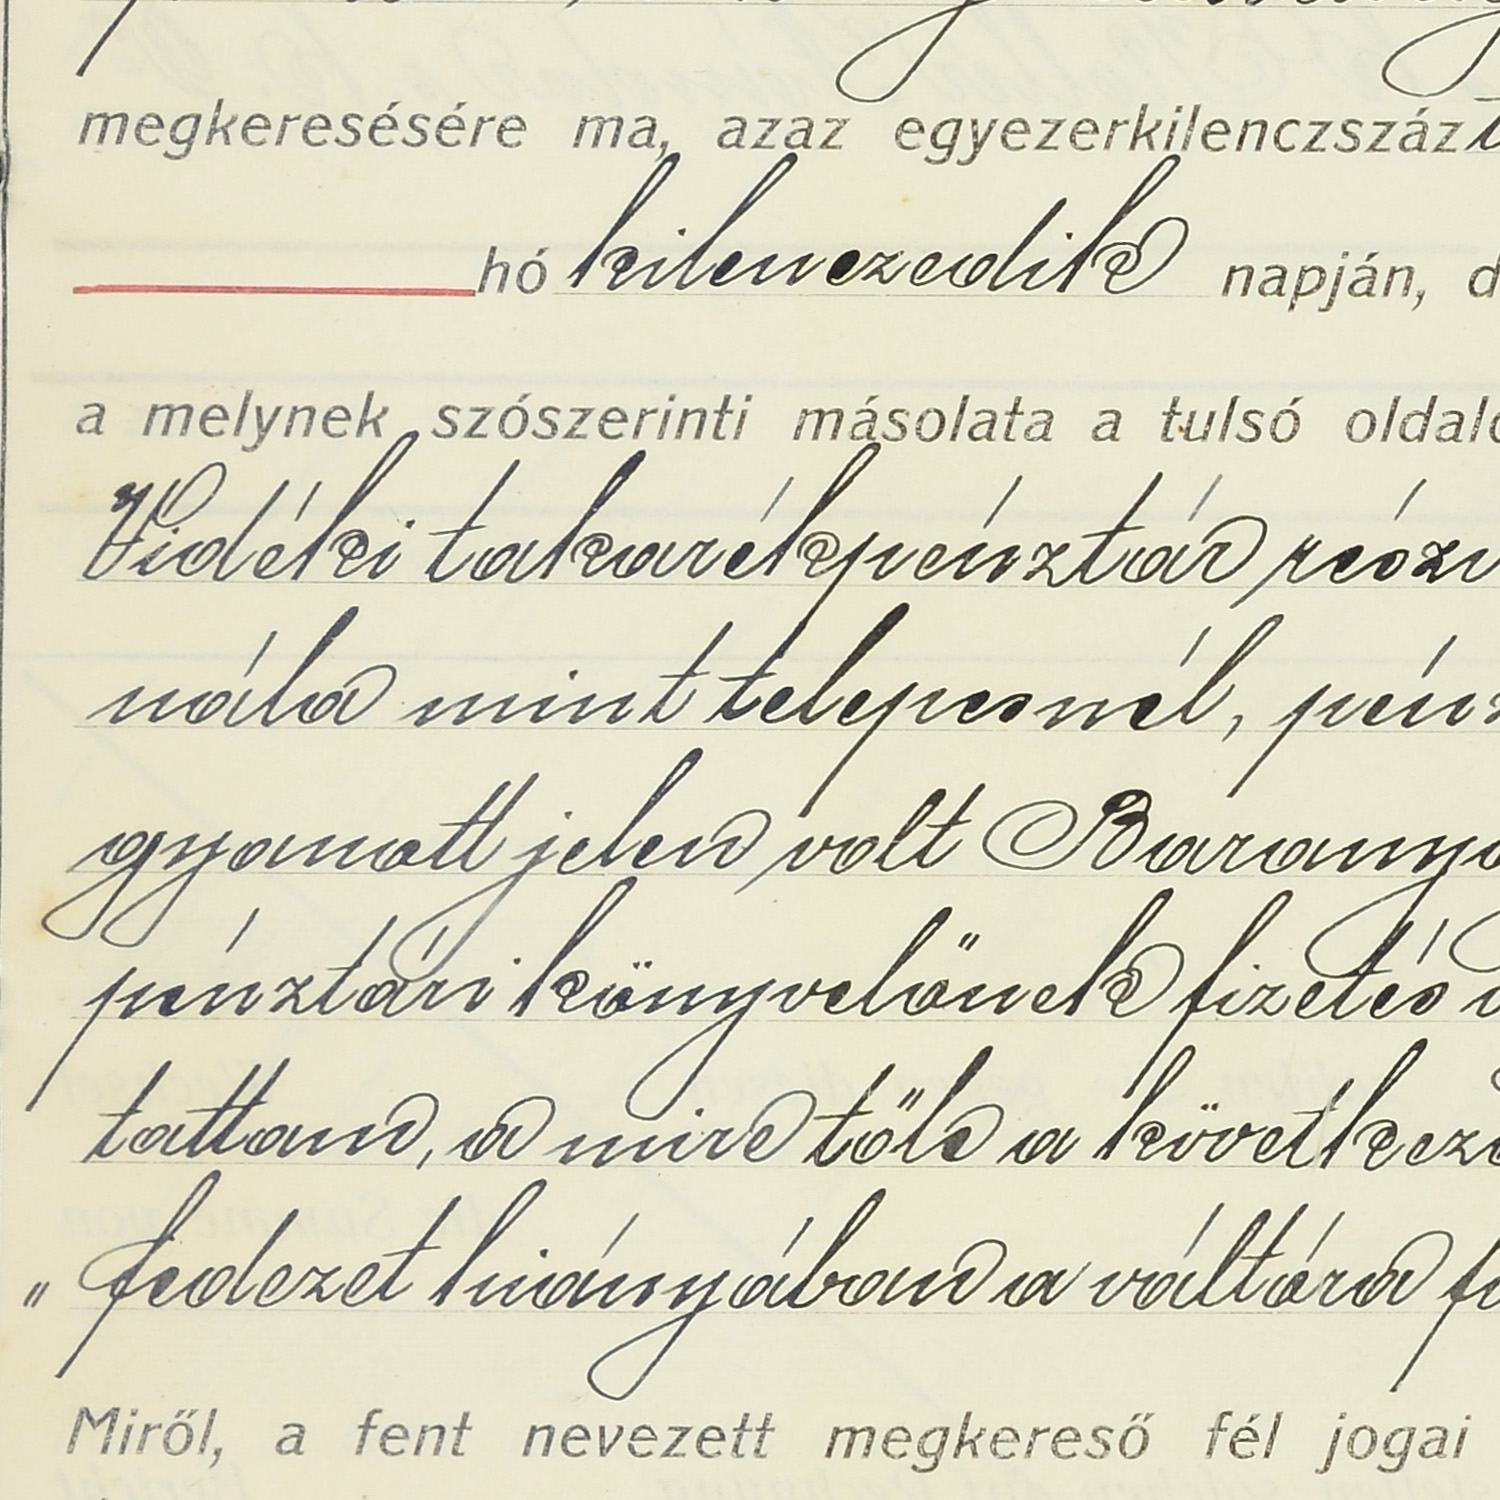 megkeresésére ma, azaz egyezerkilenczszáz
hó kilenczedik napján, d
a melynek szószerinti másolata a tulsó oldalo
Vidéki takarékpénztár részv
nála mint telepesnél, pénz
gyanatt jelen volt Baranya
pénztári könyvelőnek fizetés v
tattam, a mire tőle a következő
„ fedezet hiányában a váltóra fi
Miről, a fent nevezett megkereső fél jogai